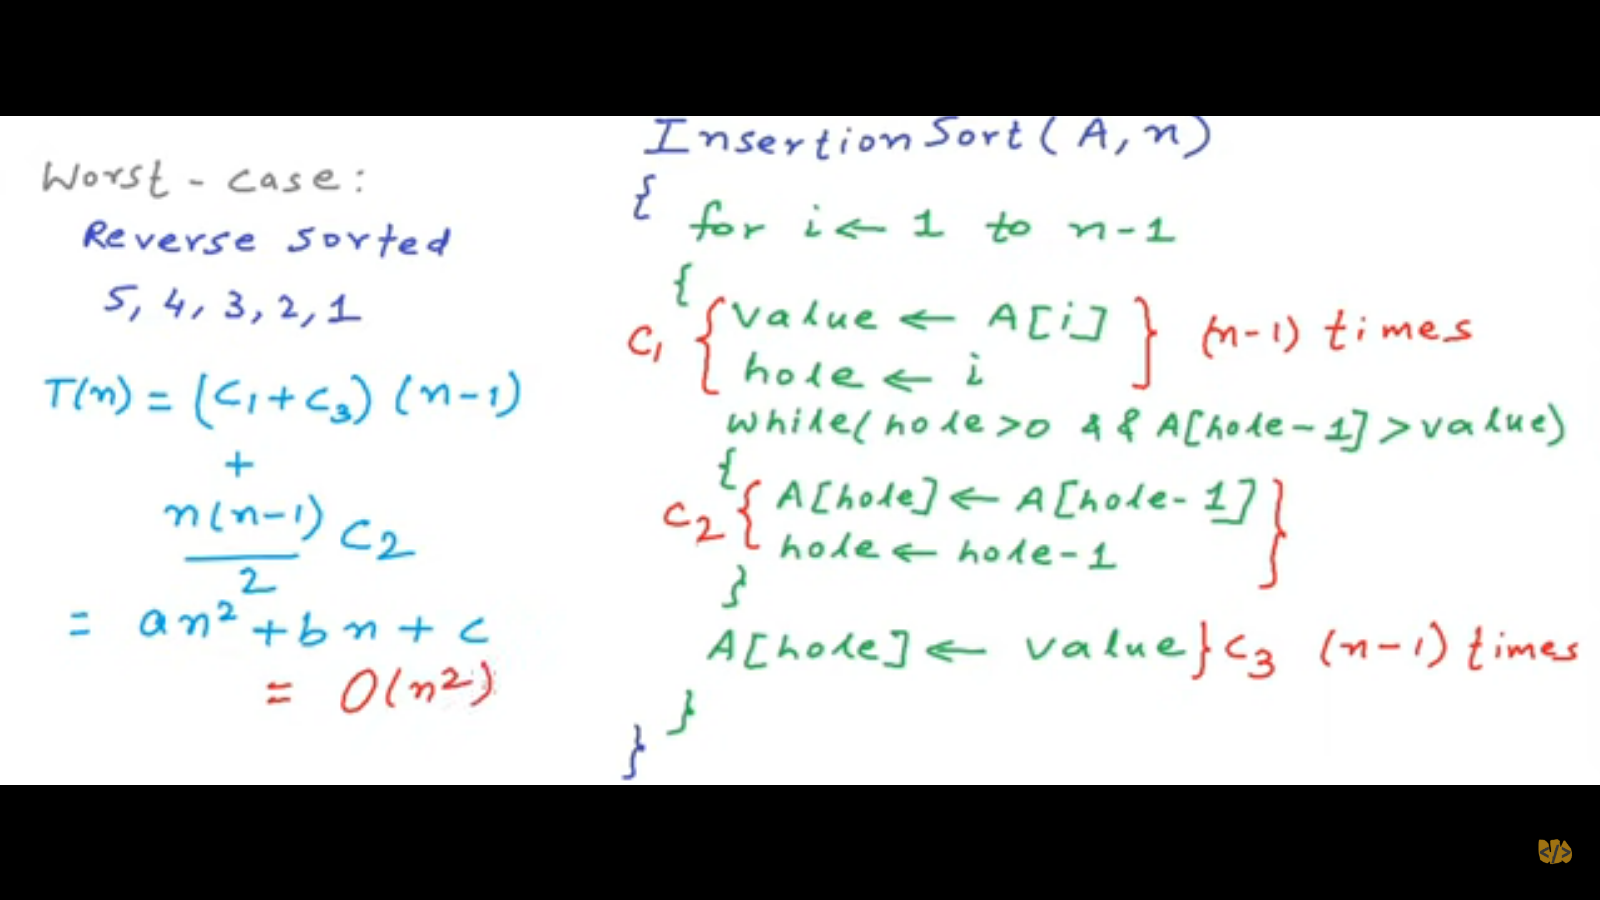 Worst - case:
Reverse sorted
5, 4, 3, 2, 1
T(n) = (C₁+C₃) (n-1)
+
n(n-1)
2
C₂
= an² + bn + c
= O(n²)
InsertionSort(A,n)
{
for i ← 1 to n-1
{
C₁ { value ← A[i] } (n-1) times
hole ← i
while(hole>0 && A[hole-1]>value)
{
C₂ { A[hole] ← A[hole-1] }
hole ← hole-1
}
A[hole] ← value } C₃ (n-1) times
}
}
</>